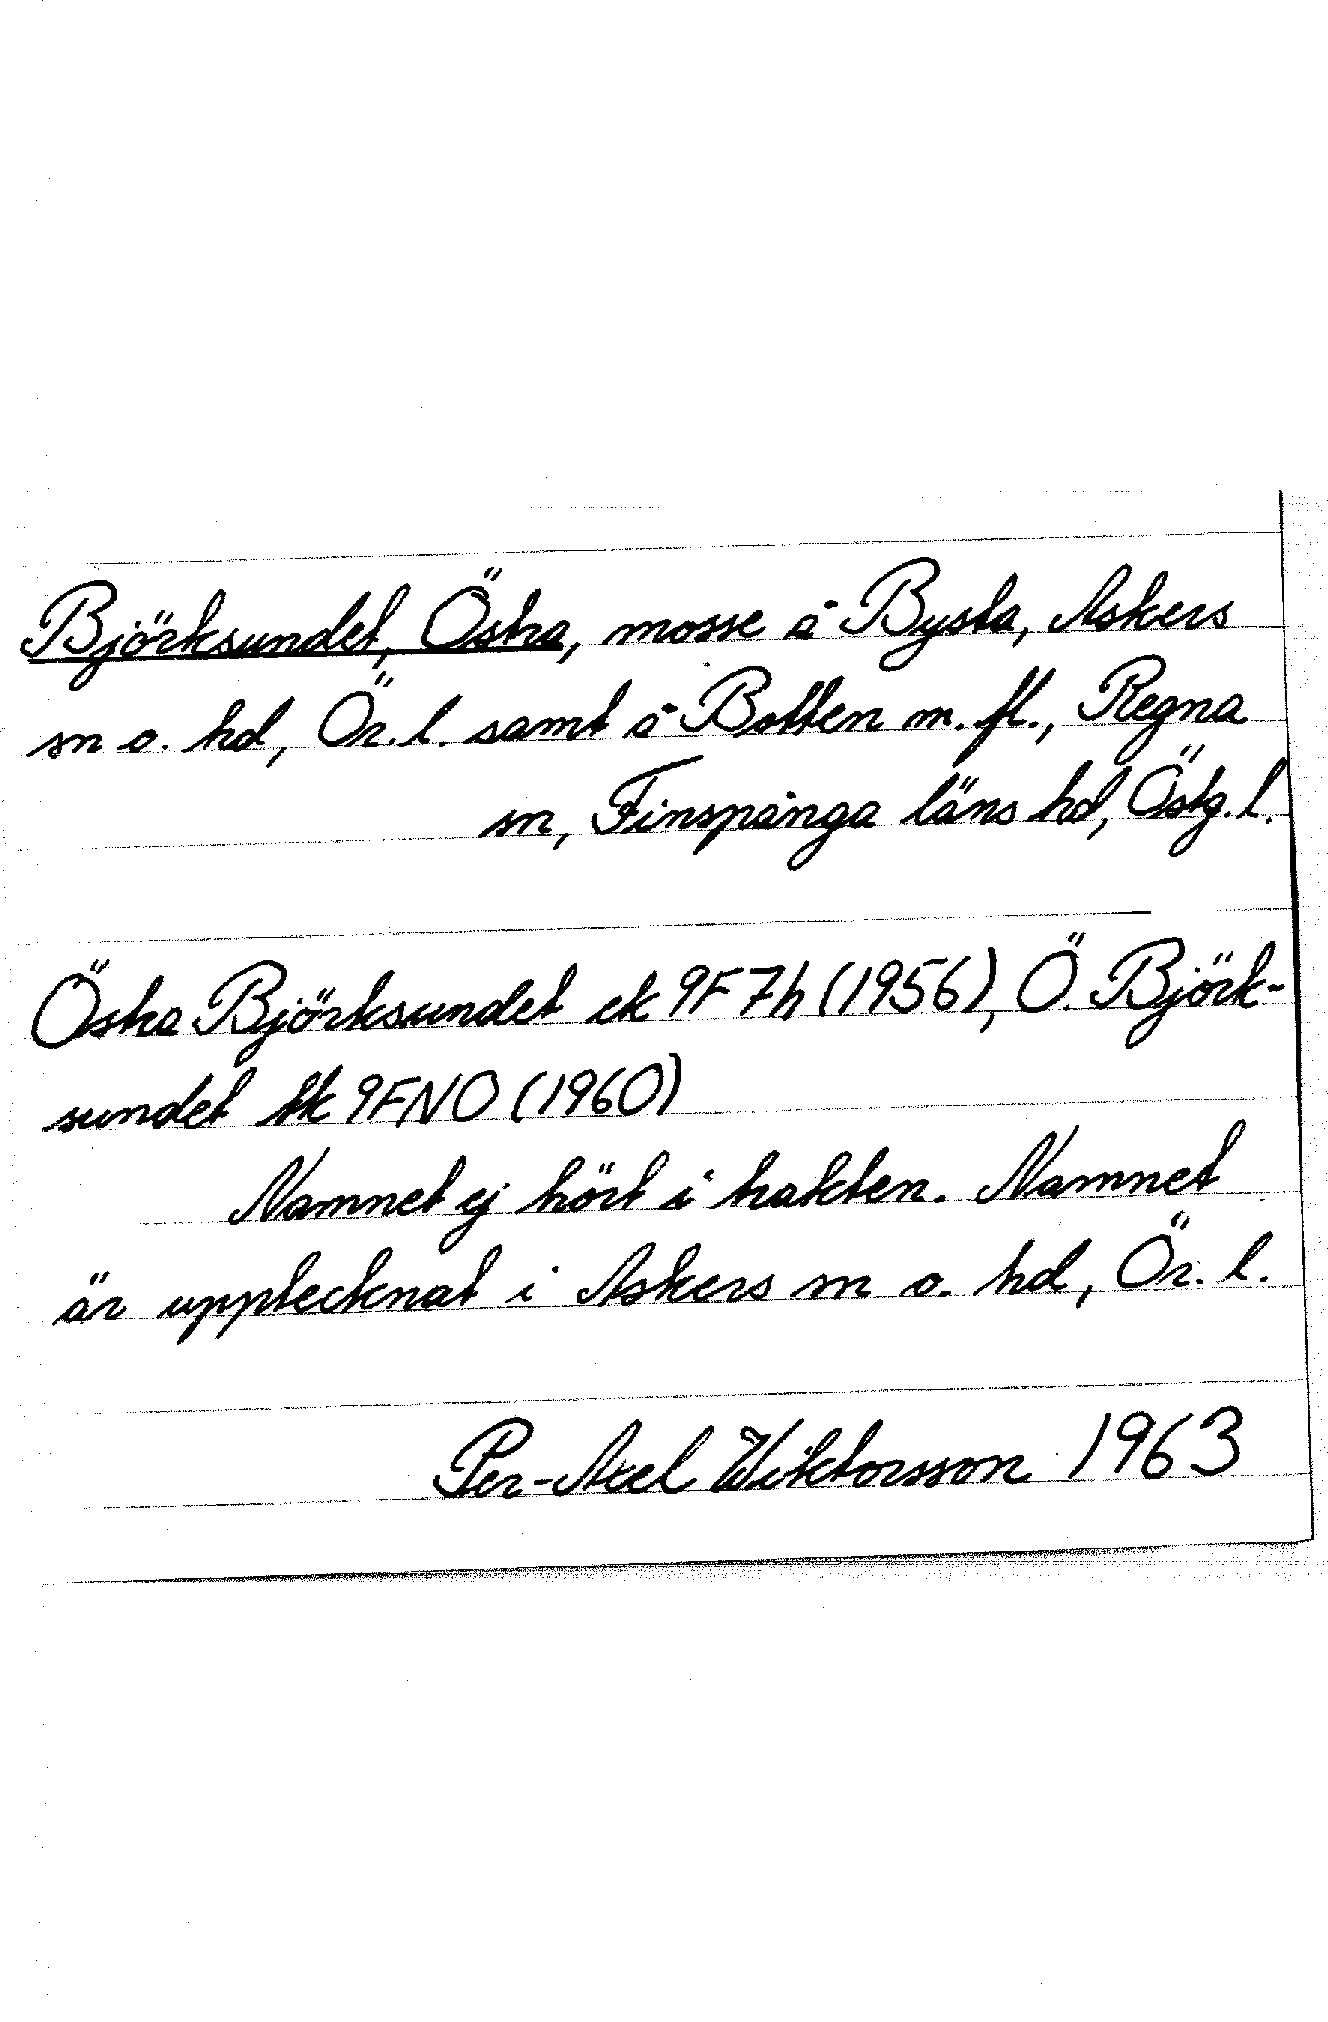 Björksundet, Östra, mosse å Bysta, Askers
sn o. hd, Ör. l. samt å Botten m. fl., Regna
sn, Finspånga läns hd, Östg. l.
Östra Björksundet ek 9F 7h (1956), Ö. Björk-
sundet tk 9FNO (1960)
Namnet ej hört i trakten. Namnet
är upptecknat i Askers sn o. hd, Ör. l.
Per-Axel Wiktorsson 1963